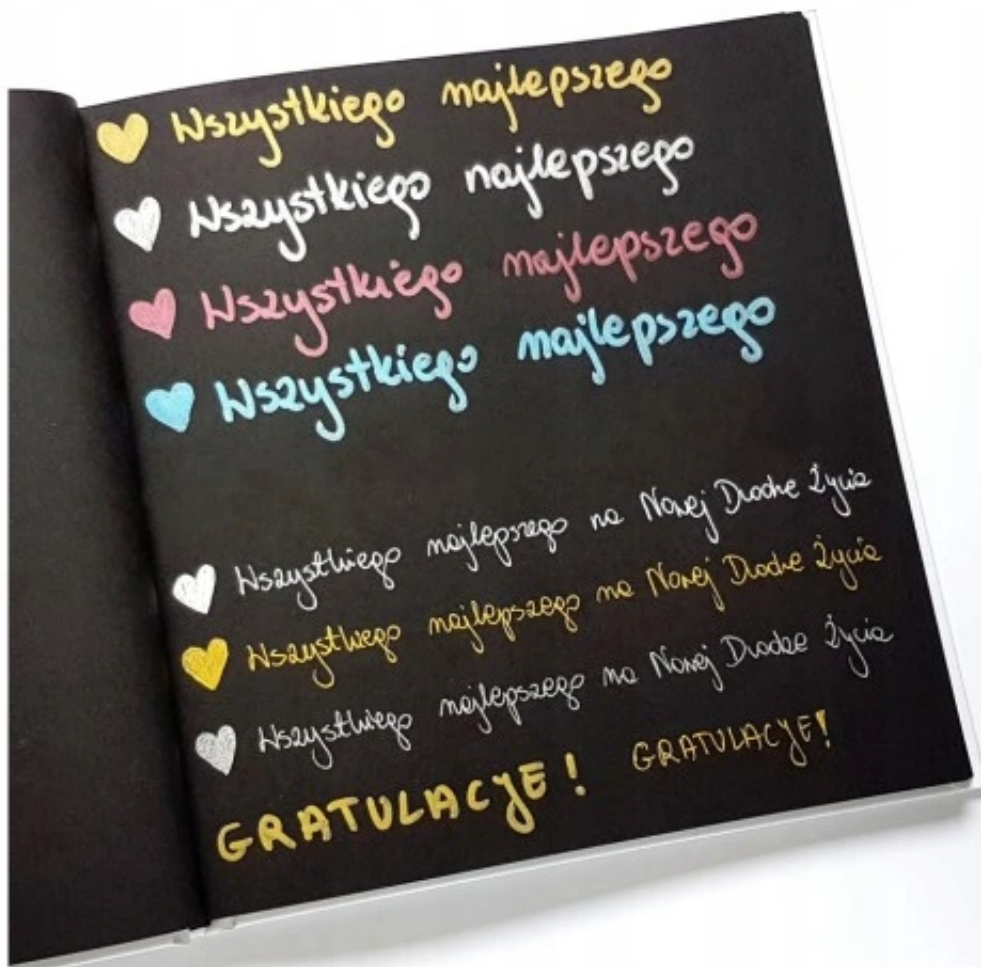 Wszystkiego najlepszego
Wszystkiego najlepszego
Wszystkiego najlepszego
Wszystkiego najlepszego
Wszystkiego najlepszego na Nowej Drodze Życia
Wszystkiego najlepszego na Nowej Drodze Życia
Wszystkiego najlepszego na Nowej Drodze Życia
GRATULACJE! GRATULACJE!